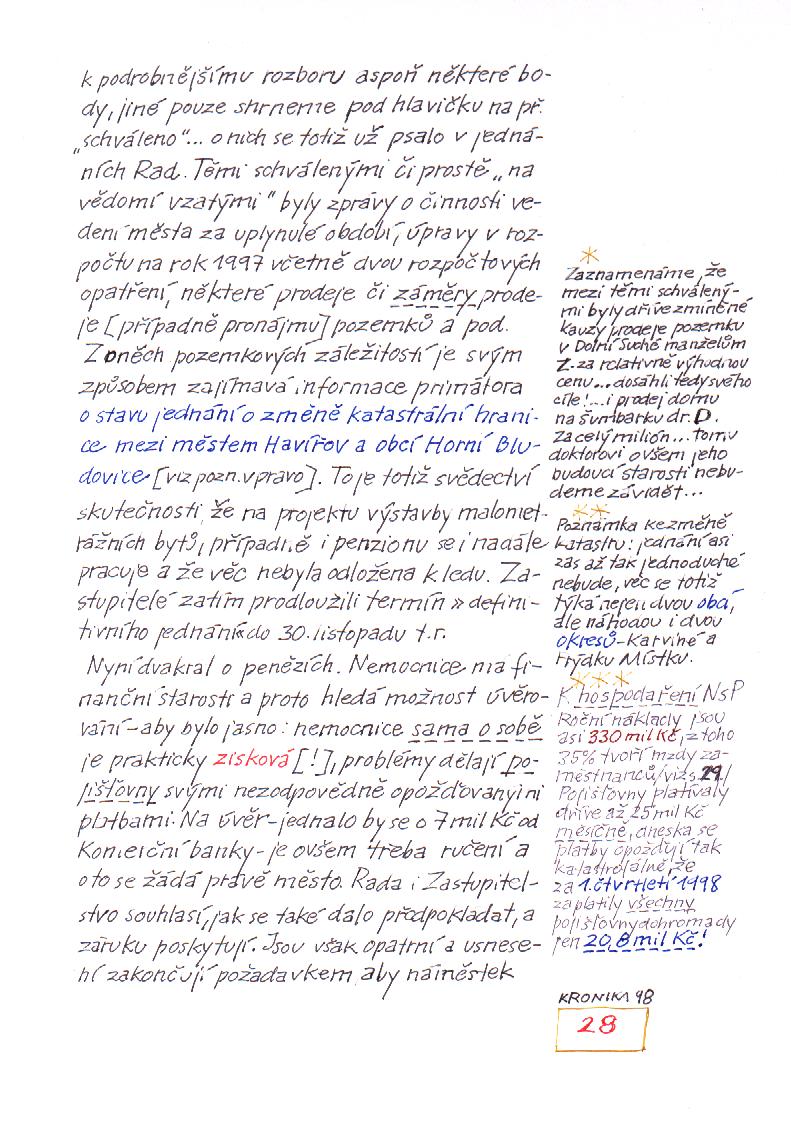 k podrobnějšímu rozboru aspoň některé bo-
dy, jiné pouze shrneme pod hlavičku na př.
„schváleno"... o nich se totiž už psalo v jedná-
ních Rad. Těmi schválenými či prostě „na
vědomí vzatými" byly zprávy o činnosti ve-
dení města za uplynulé období, úpravy v roz-
počtu na rok 1997 včetně dvou rozpočtových
opatření, některé prodeje či záměry prode-
je [případně pronájmu] pozemků a pod.
Z oněch pozemkových záležitostí je svým
způsobem zajímavá informace primátora
o stavu jednání o změně katastrální hrani-
ce mezi městem Havířov a obcí Horní Blu-
dovice [viz pozn. vpravo]. To je totiž svědectví
skutečnosti, že na projektu výstavby malomet-
rážních bytů, případně i penzionu se i nadále
pracuje a že věc nebyla odložena k ledu. Za-
stupitelé zatím prodloužili termín » defini-
tivního jednání« do 30. listopadu t.r.
Nyní dvakrát o penězích. Nemocnice má fi-
nanční starosti a proto hledá možnost úvěro-
vání – aby bylo jasno: nemocnice sama o sobě
je prakticky zisková [!], problémy dělají po-
jišťovny svými nezodpovědně opožďovanými
platbami. Na úvěr – jednalo by se o 7 mil Kč od
Komerční banky – je ovšem třeba ručení a
o to se žádá právě město. Rada i Zastupitel-
stvo souhlasí, jak se také dalo předpokládat, a
záruku poskytují. Jsou však opatrní a usnese-
ní zakončují požadavkem, aby náměstek
*
Zaznamenáme, že
mezi těmi schválený-
mi byly dříve zmíněné
kauzy prodeje pozemku
v Dolní Suché manželům
Z. za relativně výhodnou
cenu... dosáhli tedy svého
cíle!... i prodej domu
na Šumbarku dr. D.
za celý milion... tomu
doktorovi ovšem jeho
budoucí starosti nebu-
deme závidět...
**
Poznámka ke změně
katastru: jednání asi
zas až tak jednoduché
nebude, věc se totiž
týká nejen dvou obcí,
ale náhodou i dvou
okresů – Karviné a
Frýdku Místku.
***
K hospodaření NsP
Roční náklady jsou
asi 330 mil Kč, z toho
35% tvoří mzdy za-
městnanců /viz s 29/
Pojišťovny platívaly
dříve až 25 mil Kč
měsíčně, dneska se
platby opožďují tak
katastrofálně, že
za 1. čtvrtletí 1998
zaplatily všechny
pojišťovny dohromady
jen 20,8 mil Kč!
KRONIKA 98
28